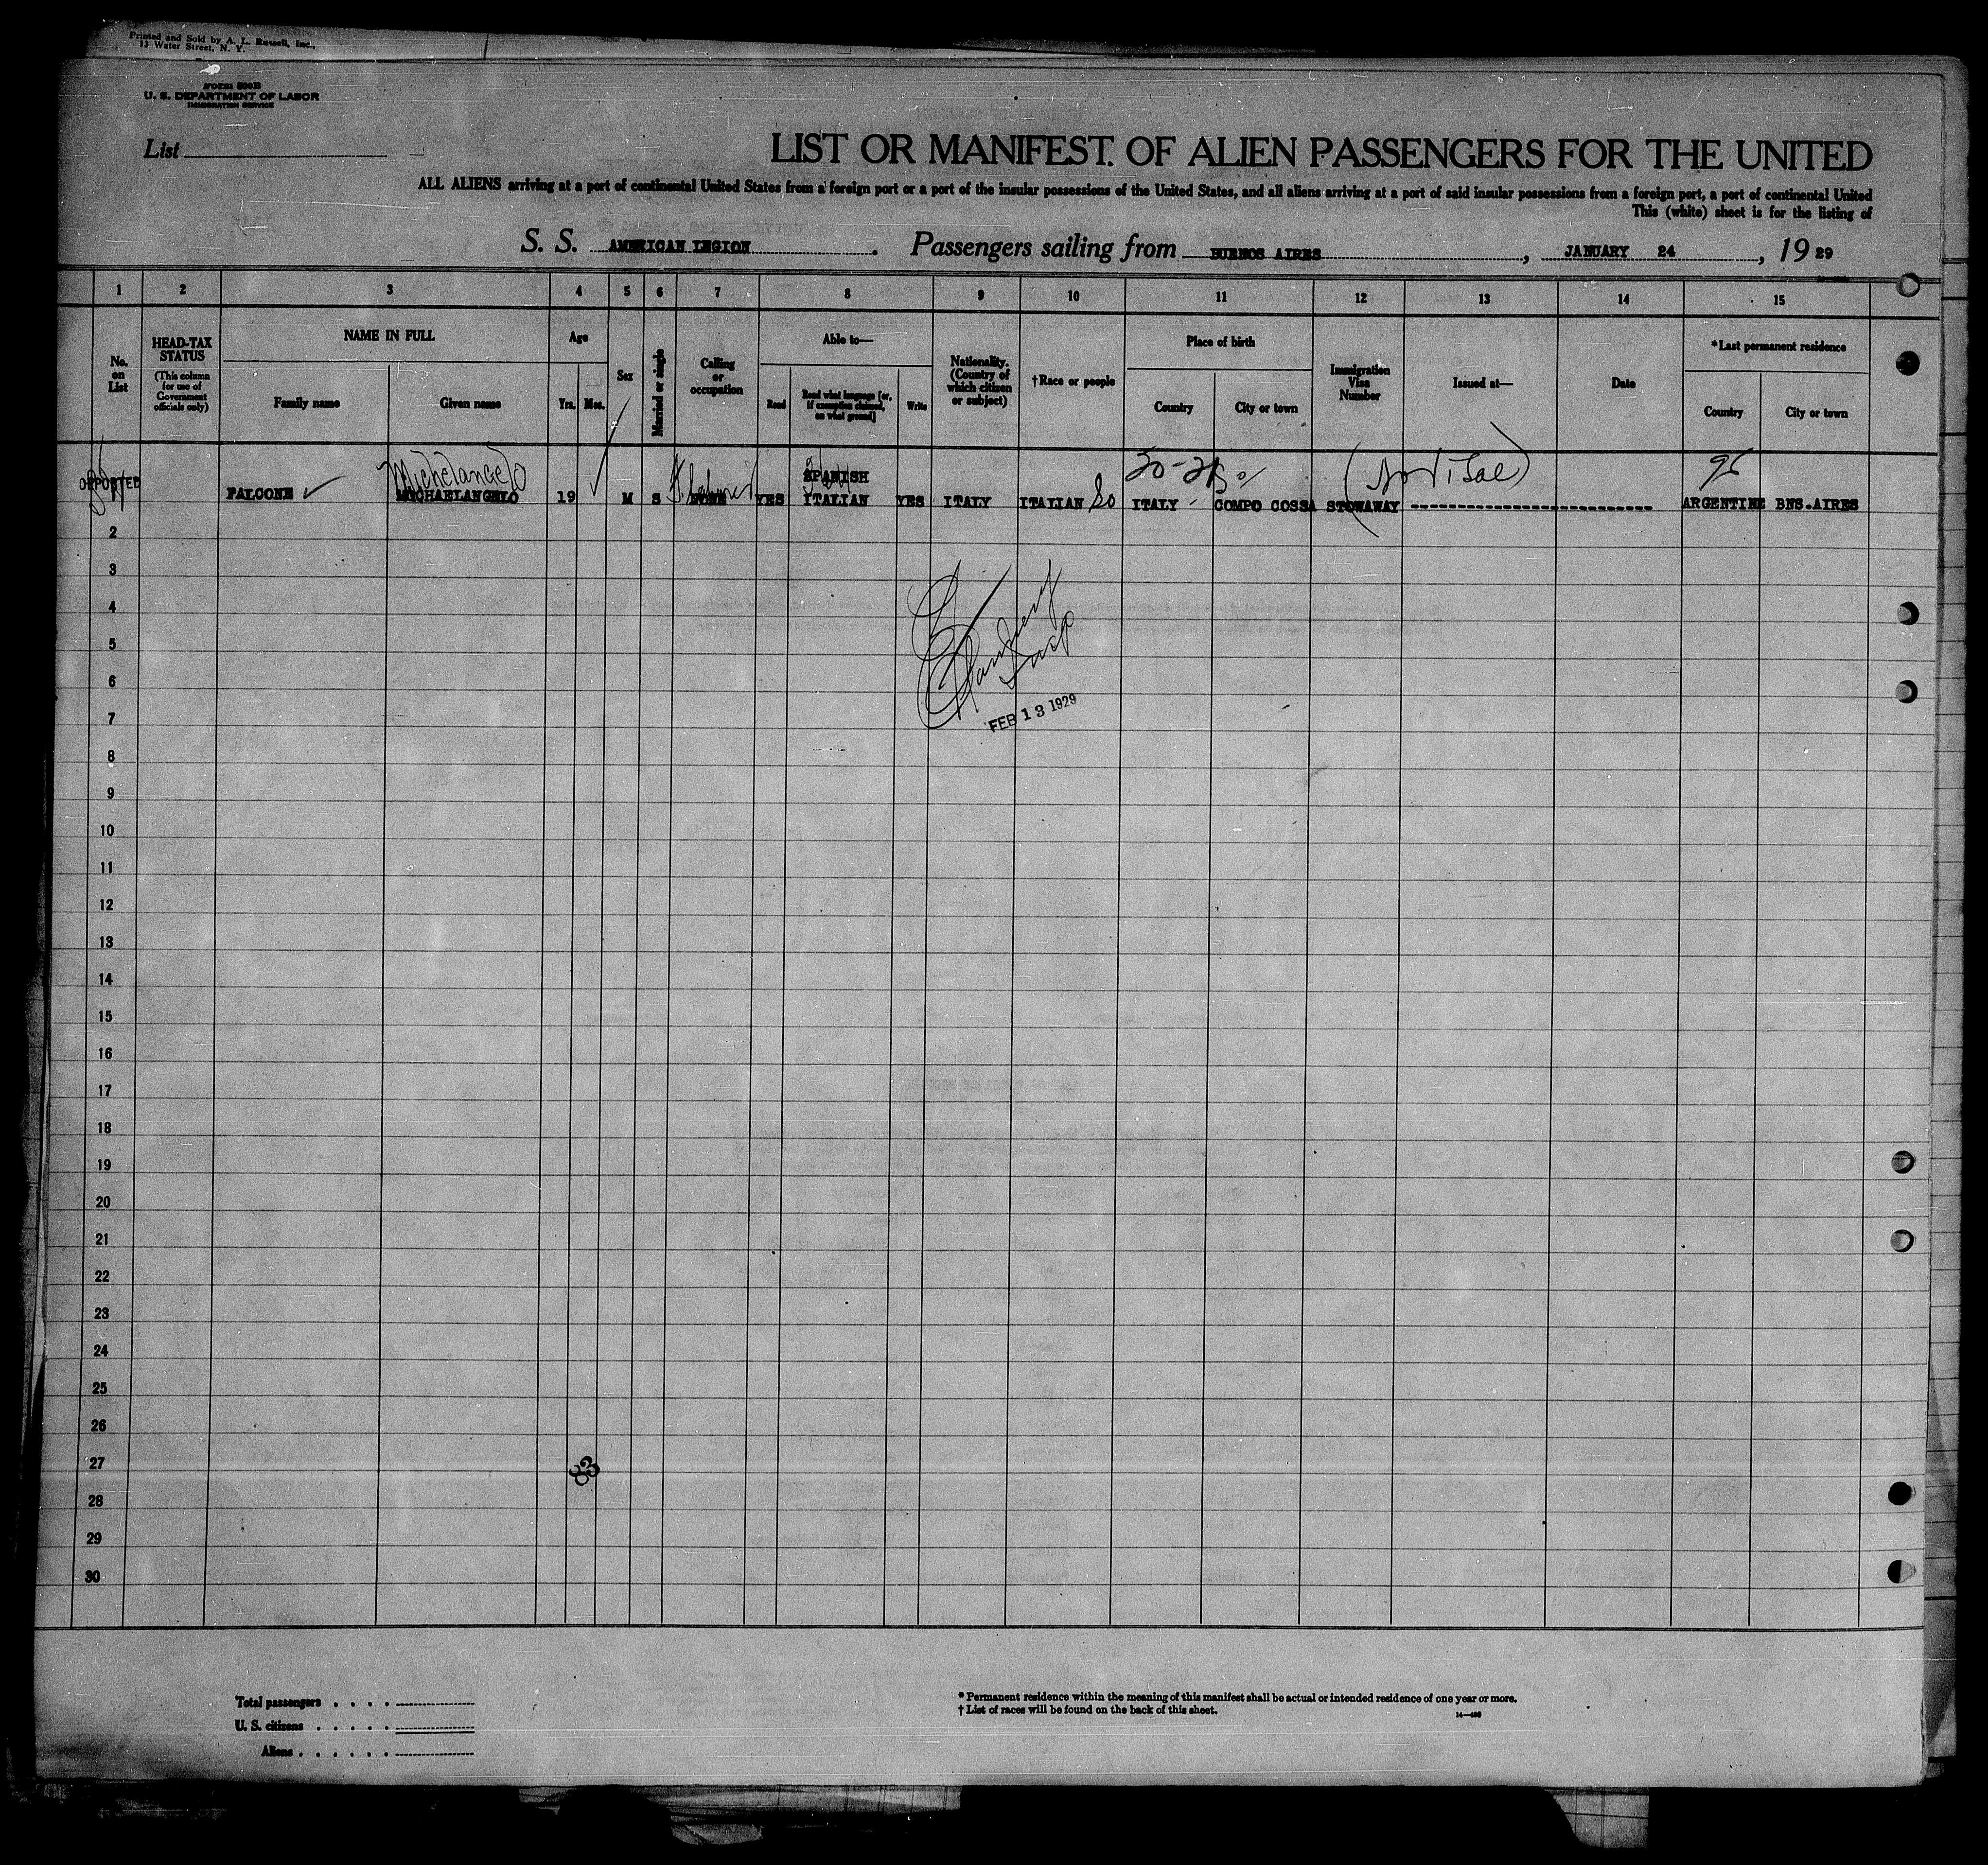 Printed and Sold by A. L. Russell, Inc.,
13 Water Street, N. Y.
Form 500B
U. S. DEPARTMENT OF LABOR
IMMIGRATION SERVICE
List
LIST OR MANIFEST OF ALIEN PASSENGERS FOR THE UNITED
ALL ALIENS arriving at a port of continental United States from a foreign port or a port of the insular possessions of the United States, and all aliens arriving at a port of said insular possessions from a foreign port, a port of continental United
This (white) sheet is for the listing of
S. S. AMERICAN LEGION. Passengers sailing from BUENOS AIRES, JANUARY 24, 19 29
1 2 3 4 5 6 7 8 9 10 11 12 13 14 15
No. on List
HEAD-TAX STATUS
(This column for use of Government officials only)
NAME IN FULL
Family name
Given name
Age
Yrs. Mos.
Sex
Married or single
Calling or occupation
Able to—
Read
Read what language [or, if exemption claimed, on what ground]
Write
Nationality. (Country of which citizen or subject)
†Race or people
Place of birth
Country
City or town
Immigration Visa Number
Issued at—
Date
*Last permanent residence
Country
City or town
Michelangelo
SPANISH
30-
(No Visae)
FALCONE ✓ MICHAELANGELO 19 M S NONE YES ITALIAN YES ITALY ITALIAN So ITALY COMPO COSSA STOWAWAY ARGENTINE BNS.AIRES
2
3
4
5
6
7
FEB 13 1929
8
9
10
11
12
13
14
15
16
17
18
19
20
21
22
23
24
25
26
27
83
28
29
30
Total passengers
U. S. citizens
Aliens
* Permanent residence within the meaning of this manifest shall be actual or intended residence of one year or more.
† List of races will be found on the back of this sheet.